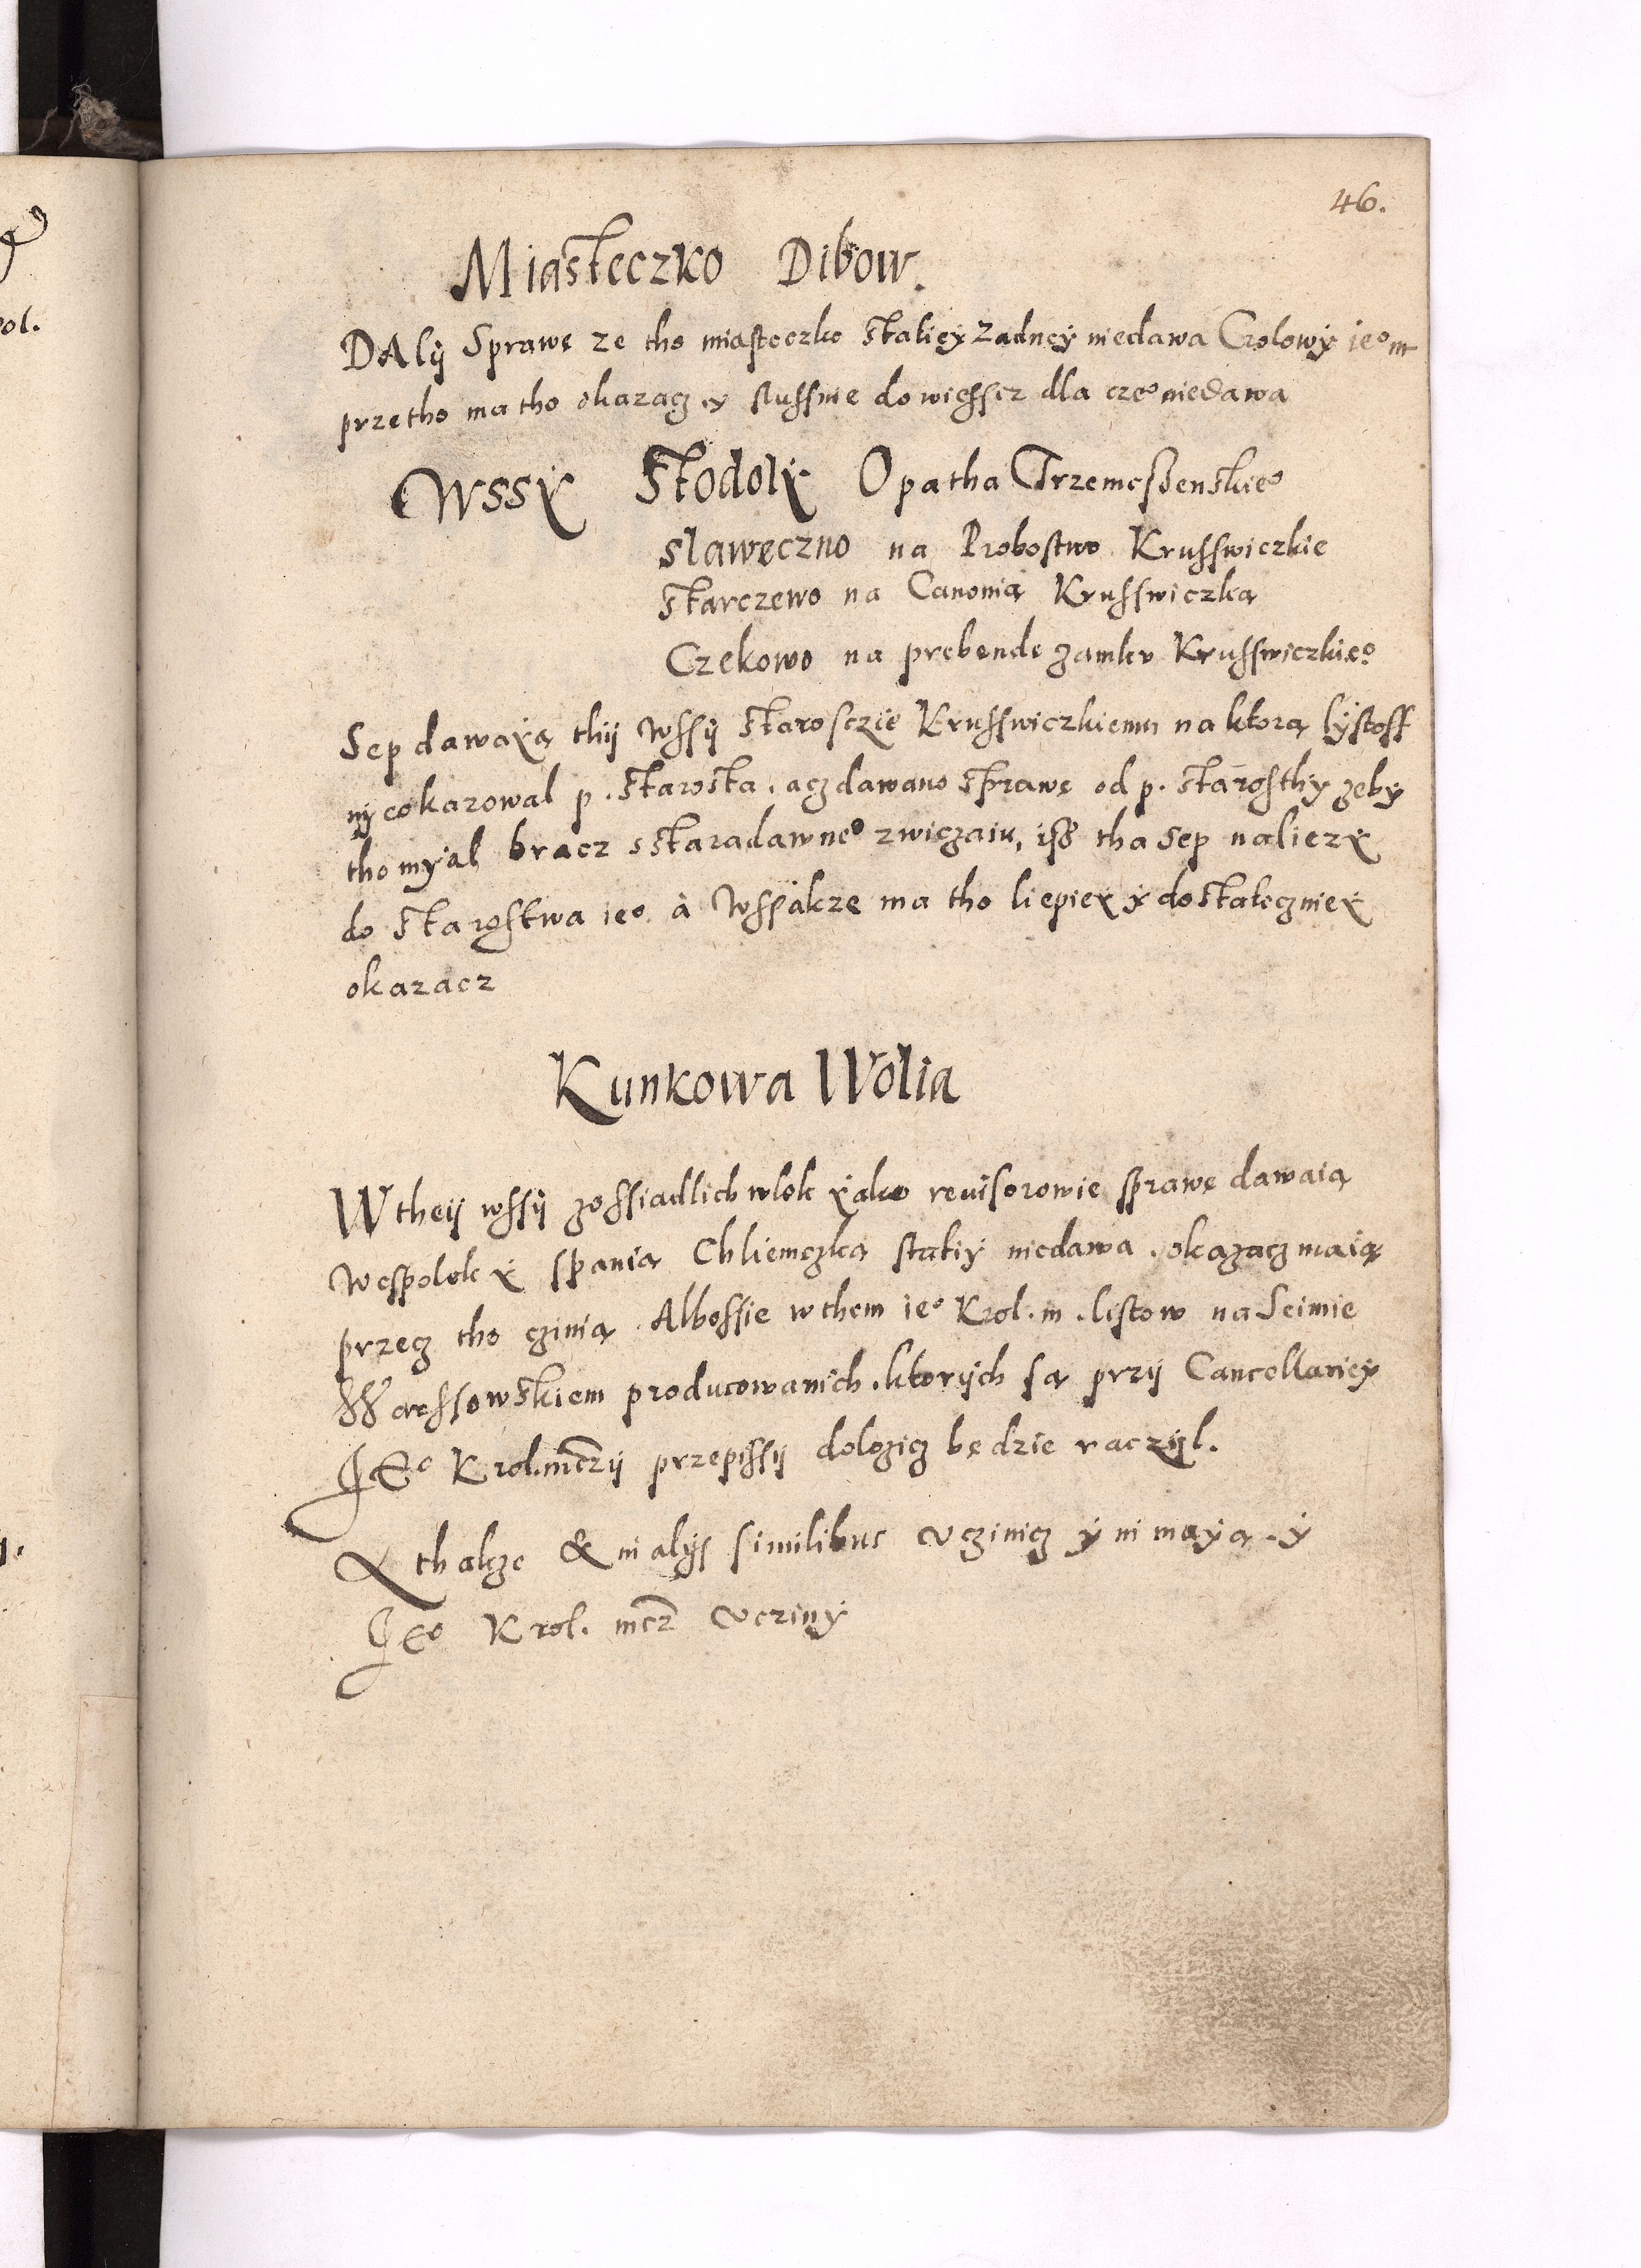 46.
Miasteczko Dibow.
DAlÿ Sprawę ze tho miasteczko staliey zadneÿ niedawa Crolowÿ ieº m
przetho ma tho okazacz y slussnie dowiesscz dla czeº niedawa
Wssÿ Stodolÿ Opatha Trzemesßenskieº
slawęczno na Probostwo Krusswiczkie
starczewo na Canonią Krusswiczką
Czekowo na prebende zamku Krusswiczkieº
Sep dawaÿą thÿ Wssÿ starosczie Krusswiczkiemu na ktorą lÿstoff
nÿeokazowal p. starosta. acz dawano sprawę od p. starosthÿ zeby
tho mÿal bracz sstaradawneº zwiczaiu, isß tha sep naliezÿ
do starostwa ieº. à Wssàkze ma tho liepieÿ ÿ dostatecznieÿ
okazacz
Kunkowa Wolia
W theÿ wssÿ zossiadlich wlok ÿako reuisorowie sprawę dawaią
wespolek ÿ spanią Chliemczką statiÿ niedawa. okazacz maią
przecz tho czinią. Albossie wthem ieº Krol. m. listow na Seimie
Warssowskiem producowanich. ktorÿch są przÿ Cancellarieÿ
JEº Krol. mczÿ przepissÿ dolozicz będzie raczÿl.
Y thakze & in alÿs similibus vczinicz ÿ ni maÿą. ÿ
JEº Krol. mcz vczinÿ